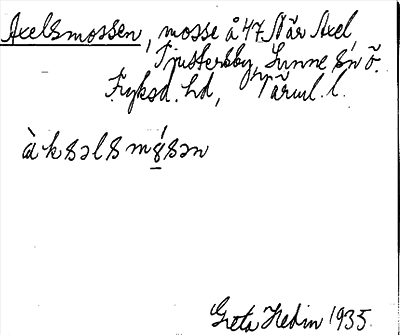 Axelsmossen, mosse å 47 När Axel,
Tjustersby, Sunne sn ö.
Fryksd. hd, Värml. l.
àksəlsmósən
Greta Hedin 1935.